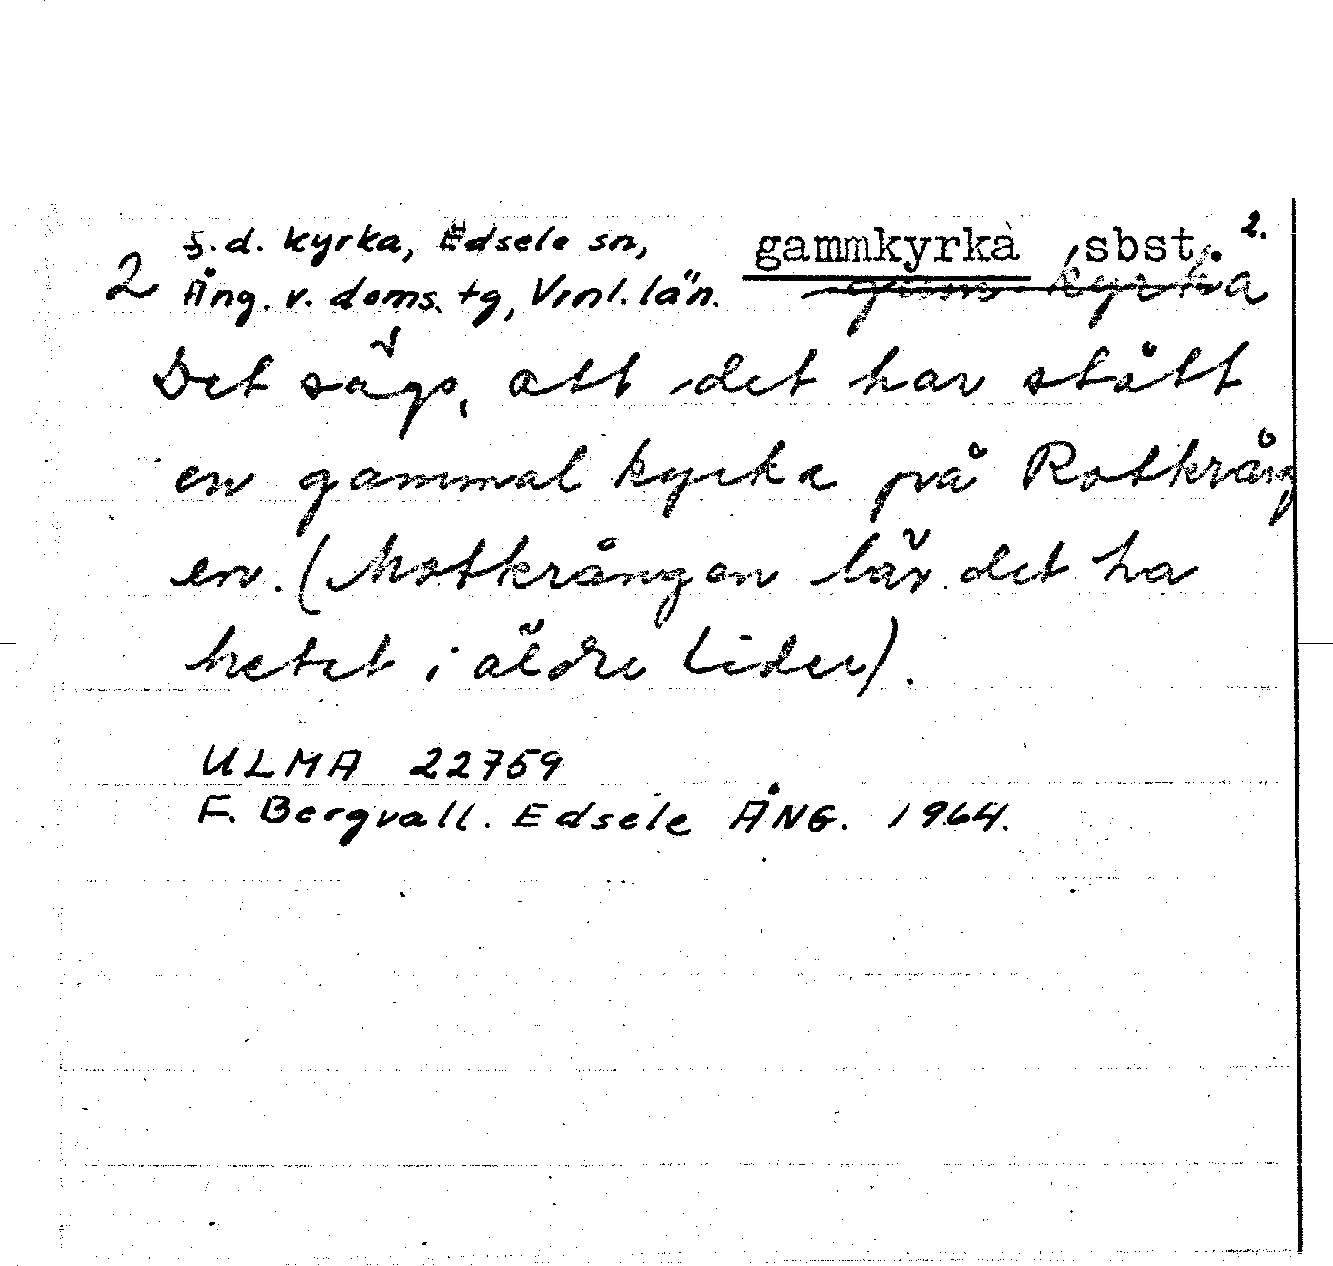 f.d. kyrka, Edsele sn, gammkyrka sbst. 2.
2 Ång. v. doms. tg, Vrnl. län. gamkyrka
Det sägs, att det har stått
en gammal kyrka på Rotkrång
en. (Motkrången lär det ha
hetat i äldre tider).
ULMA 22759
F. Bergvall. Edsele ÅNG. 1964.